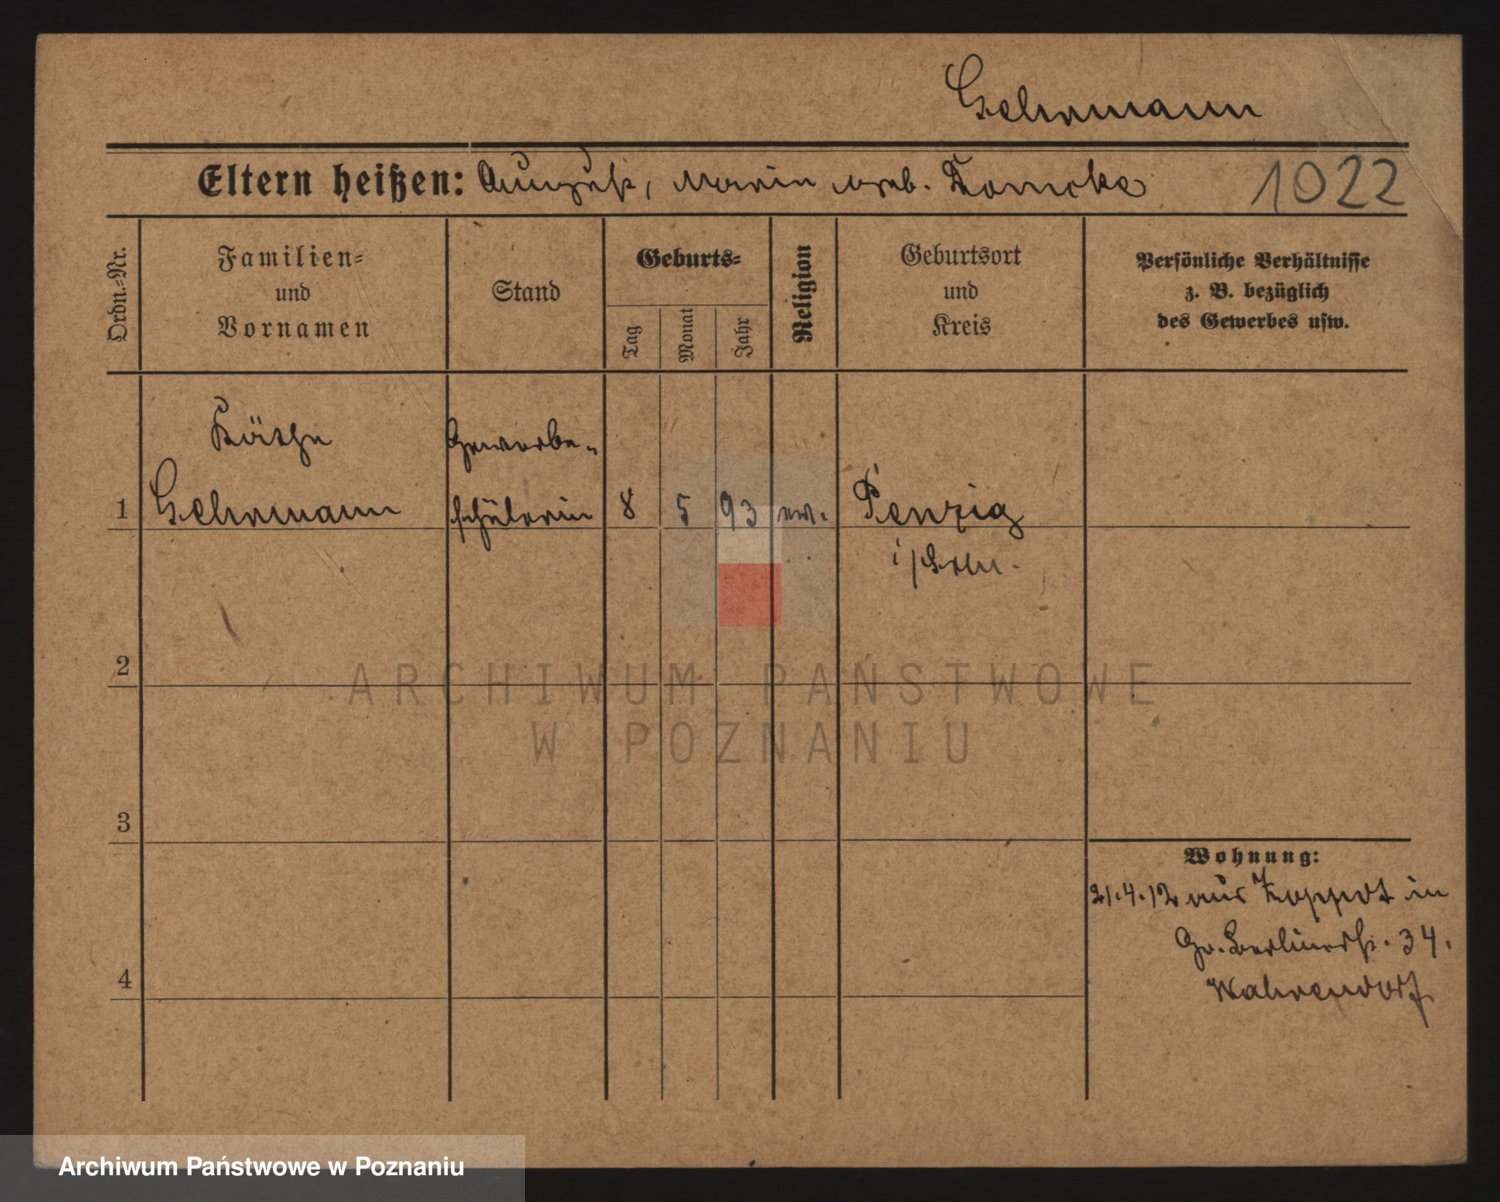 Gehrmann
Eltern heißen: August, Marie geb. Domcke 1022
Ordn.-Nr.
Familien- und Vornamen
Stand
Geburts-
Tag
Monat
Jahr
Religion
Geburtsort und Kreis
Persönliche Verhältnisse
z. B. bezüglich
des Gewerbes usw.
Käthe
Gewerbe-
1 Gehrmann schülerin 8 5 93 ev. Penzig
2
3
4
Wohnung:
21.4.12 aus Zoppot in
Gr. Berlinerstr. 34.
Wahrendorf
ARCHIWUM PAŃSTWOWE
W POZNANIU
Archiwum Państwowe w Poznaniu